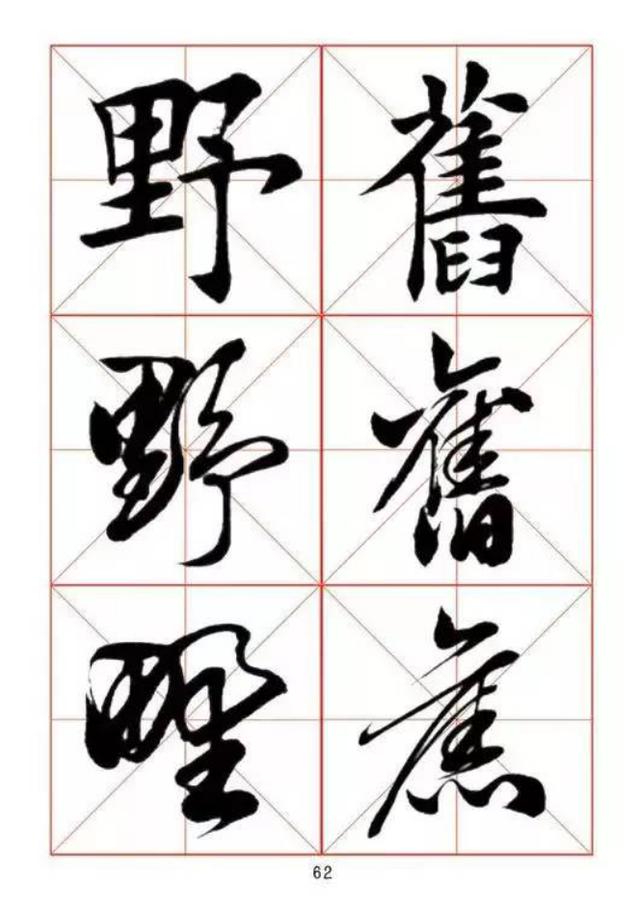 舊舊舊
野野野
62